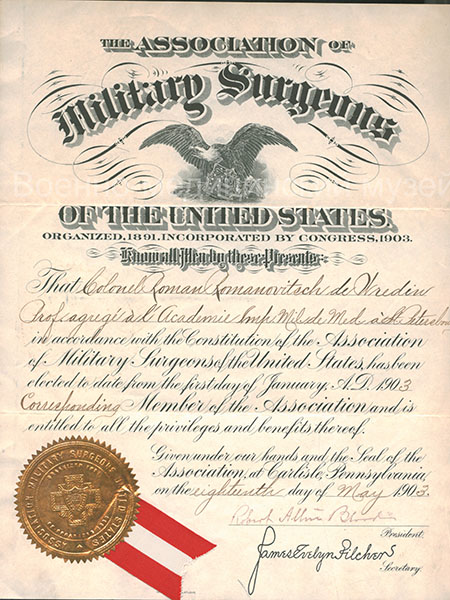 THE ASSOCIATION OF
Military Surgeons
Военно-медицинский музей
OF THE UNITED STATES.
ORGANIZED, 1891, INCORPORATED BY CONGRESS, 1903.
Know all Men by these Presents
That Colonel Roman Romanovitsch de Wredin
Prof. agrégé à l'Academie Imp. Mil. de Med. à St. Petersbourg
in accordance with the Constitution of the Association
of Military Surgeons of the United States, has been
elected to date from the first day of January, A.D. 1903
Corresponding Member of the Association and is
entitled to all the privileges and benefits thereof.
Given under our hands and the Seal of the
Association, at Carlisle, Pennsylvania,
on the eighteenth day of May 1903.
Robert Allen
President.
James Evelyn Pilcher
Secretary.
ASSOCIATION MILITARY SURGEONS UNITED STATES